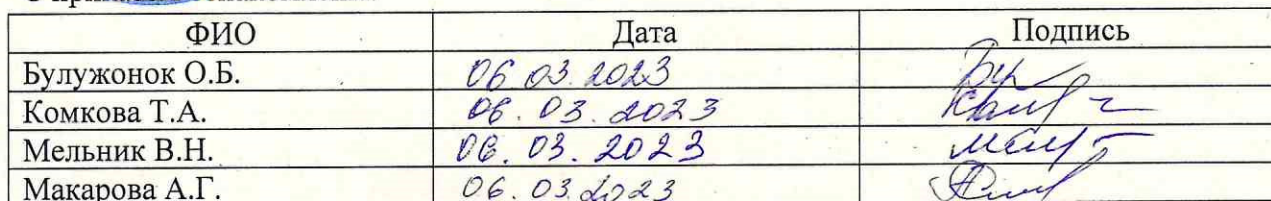 ФИО Дата Подпись
Булужонок О.Б. 06.03.2023
Комкова Т.А. 06.03.2023
Мельник В.Н. 06.03.2023
Макарова А.Г. 06.03.2023